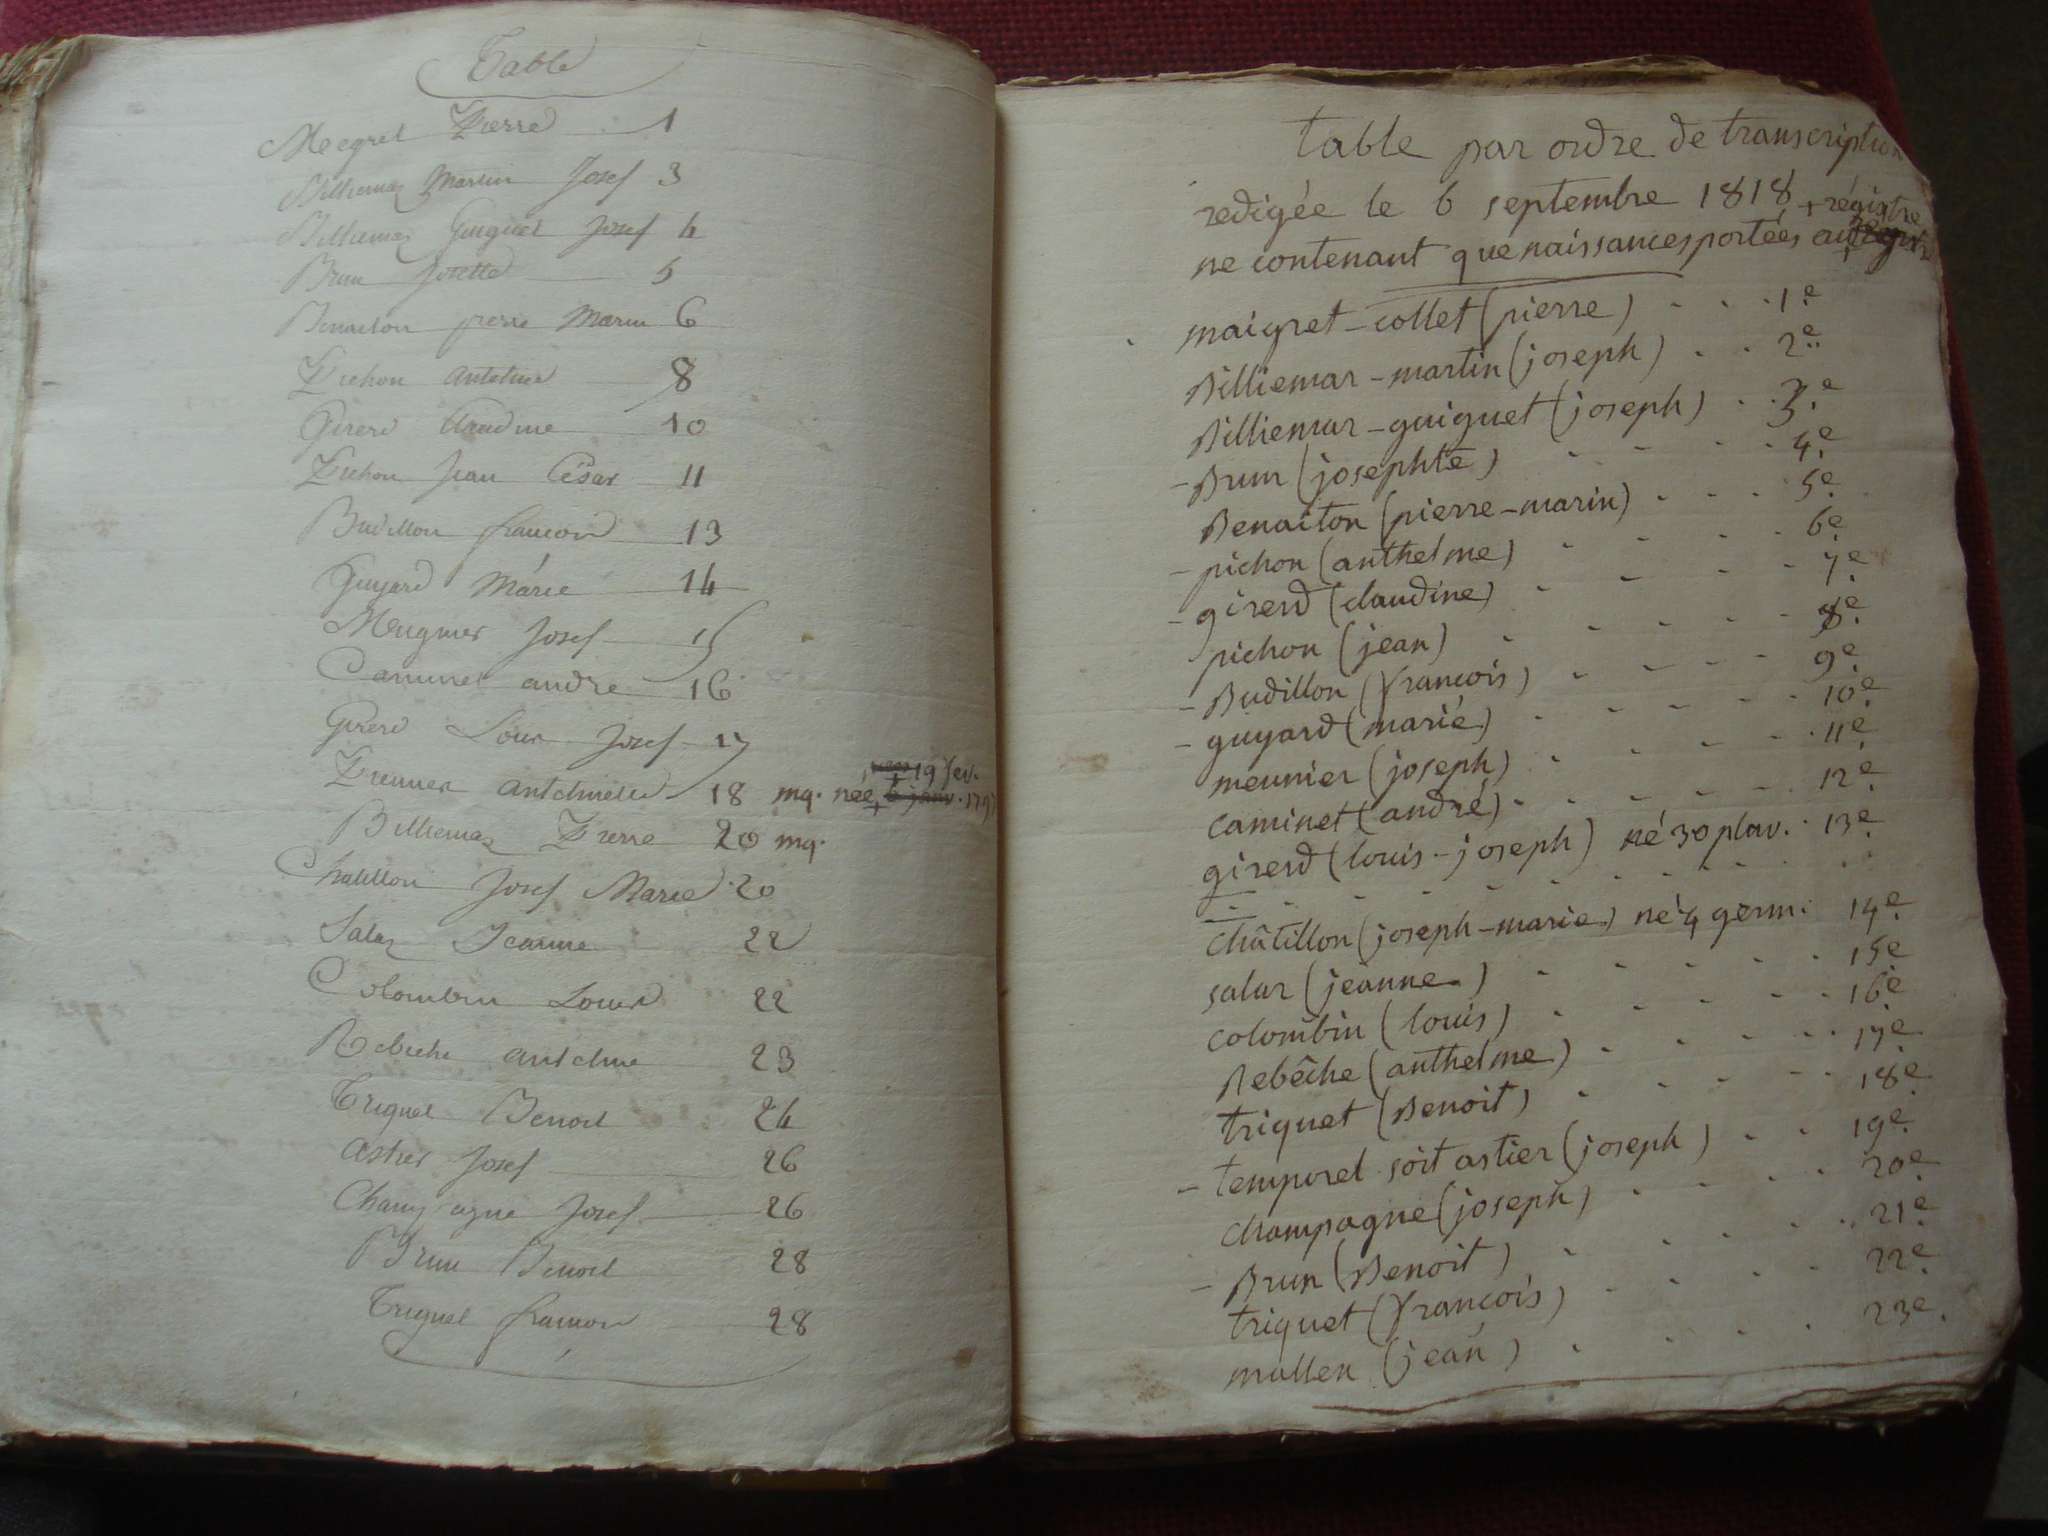 Table
Megret Pierre 1
Billiemaz Martin Josef 3
Billiemaz Guiguet Josef 4
Brun Josette 5
Benaiton pierre Marin 6
Pichon Antelme 8
Girerd Claudine 10
Pichon Jean César 11
Budillon françois 13
Guyard Marie 14
Meugnier Josef 15
Caminet andré 16
Girerd Louis Josef 17
19 fev.
antelmette 18 mq. née 6 janv. 179
Billiemaz Pierre 20 mq.
Chatillon Josef Marie 20
Salaz Jeanne 22
Colombin Louis 22
Rebeche antelme 23
Triquet Benoit 24
Astier Josef 26
Champagne Josef 26
Brun Benoit 28
Triquet françois 28
table par ordre de transcription
redigée le 6 septembre 1818 + régistre
ne contenant que naissances portées au
maigret-collet (pierre) 1.e
Billiemar-martin (joseph) 2.e
Billiemar-guiguet (joseph) 3.e
- Brun (josephte) 4.e
Benaiton (pierre-marin) 5.e
- pichon (anthelme) 6.e
- girerd (claudine) 7.e
pichon (jean) 8.e
- Budillon (françois) 9.e
- guyard (marie) 10.e
meunier (joseph) 11.e
caminet (andré) 12.e
girerd (louis-joseph) né 30 pluv. 13.e
châtillon (joseph-marie) né 4 germ. 14.e
salar (jeanne) 15.e
colombin (louis) 16.e
Rebêche (anthelme) 17.e
triquet (Benoit) 18.e
- temporel soit astier (joseph) 19.e
champagne (joseph) 20.e
- Brun (Benoit) 21.e
triquet (françois) 22.e
mallen (jean) 23.e